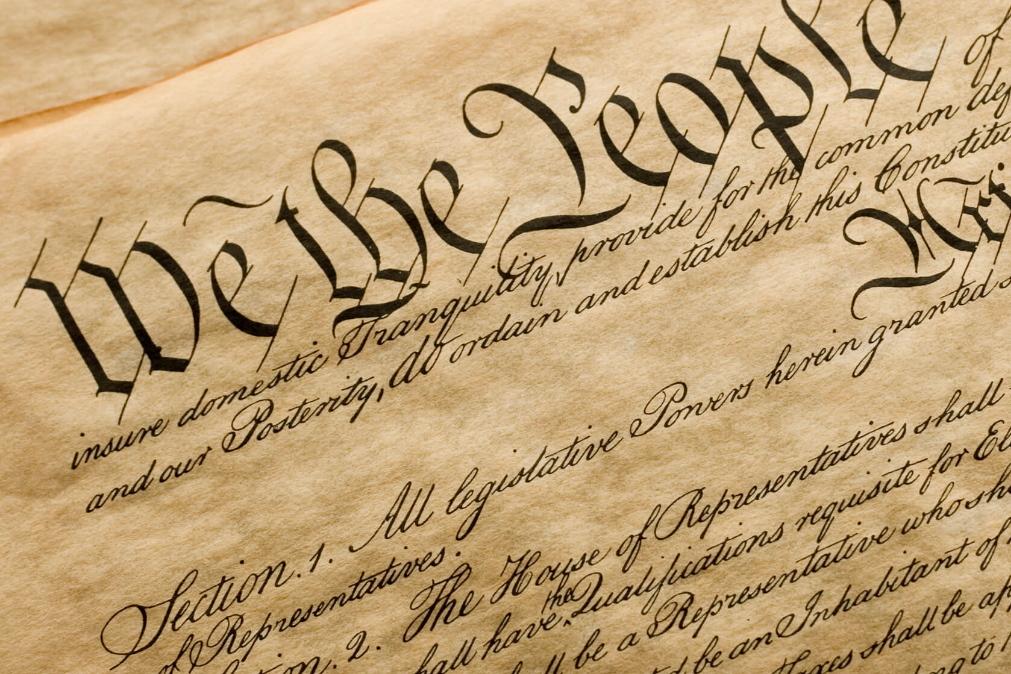 We the People of
insure domestic Tranquility, provide for the common def
and our Posterity, do ordain and establish this Constitu
Arti
Section. 1. All legislative Powers herein granted s
of Representatives.
ion. 2. The House of Representatives shall
hall have the Qualifications requisite for El
ll be a Representative who sh
d be an Inhabitant of
Taxes shall be ap
ng to